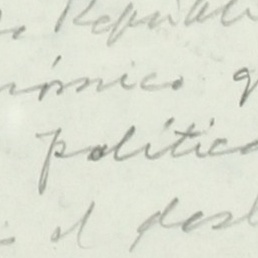 República
nómico q
política
el desl